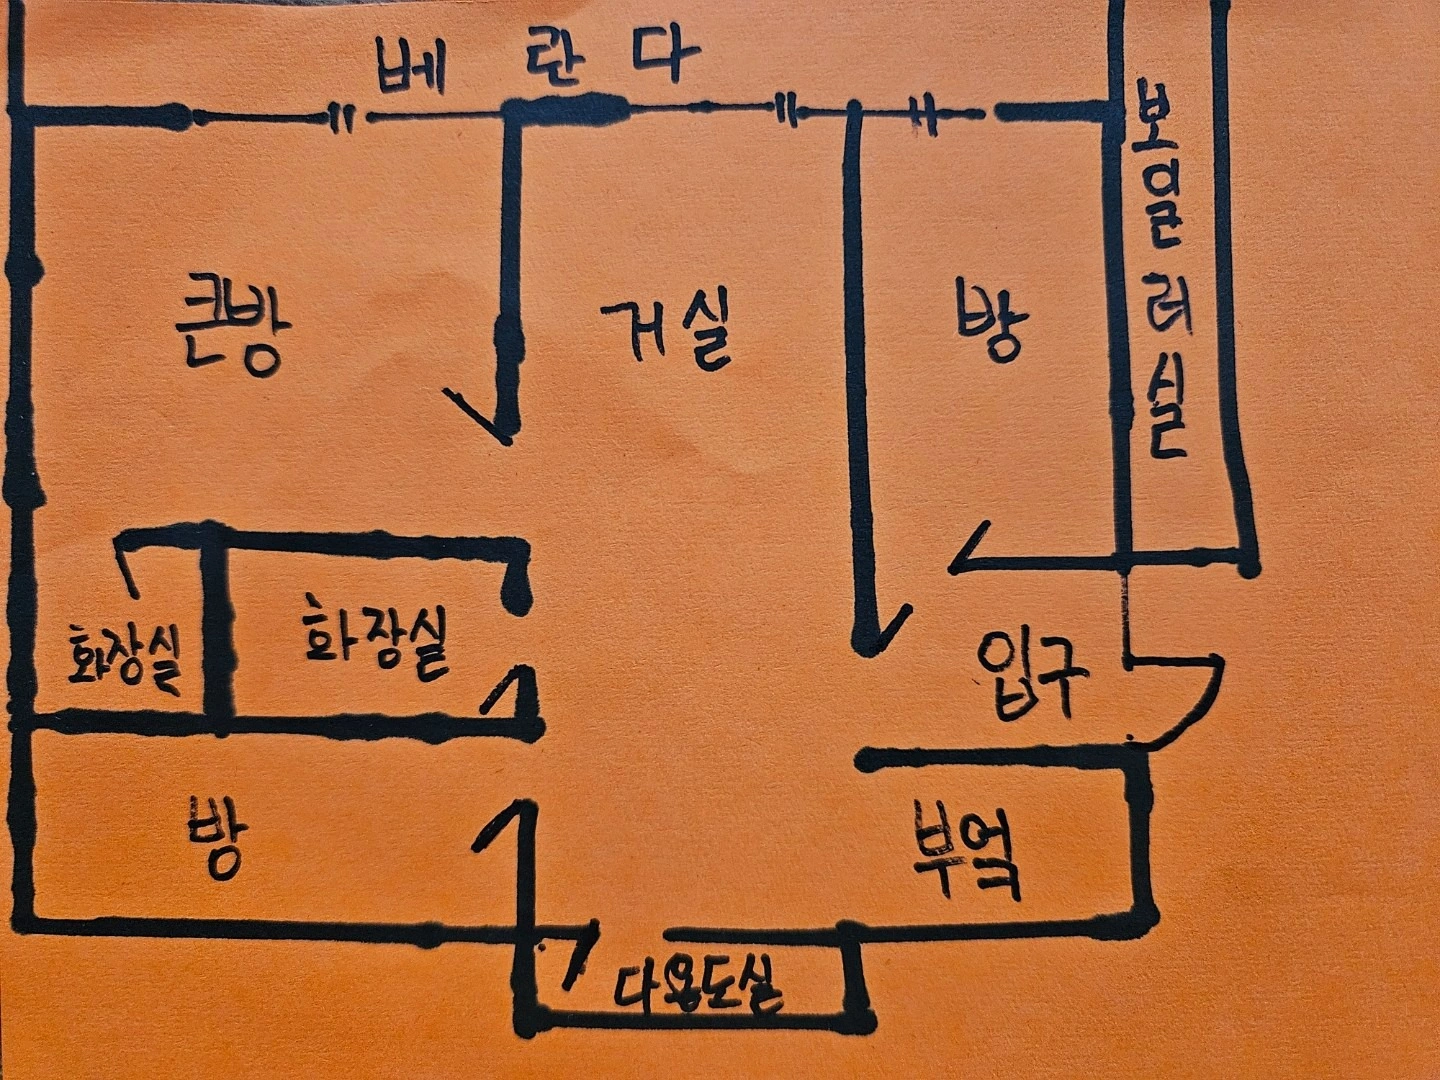 베란다
보일러실
큰방
거실
방
화장실
화장실
입구
방
부엌
다용도실